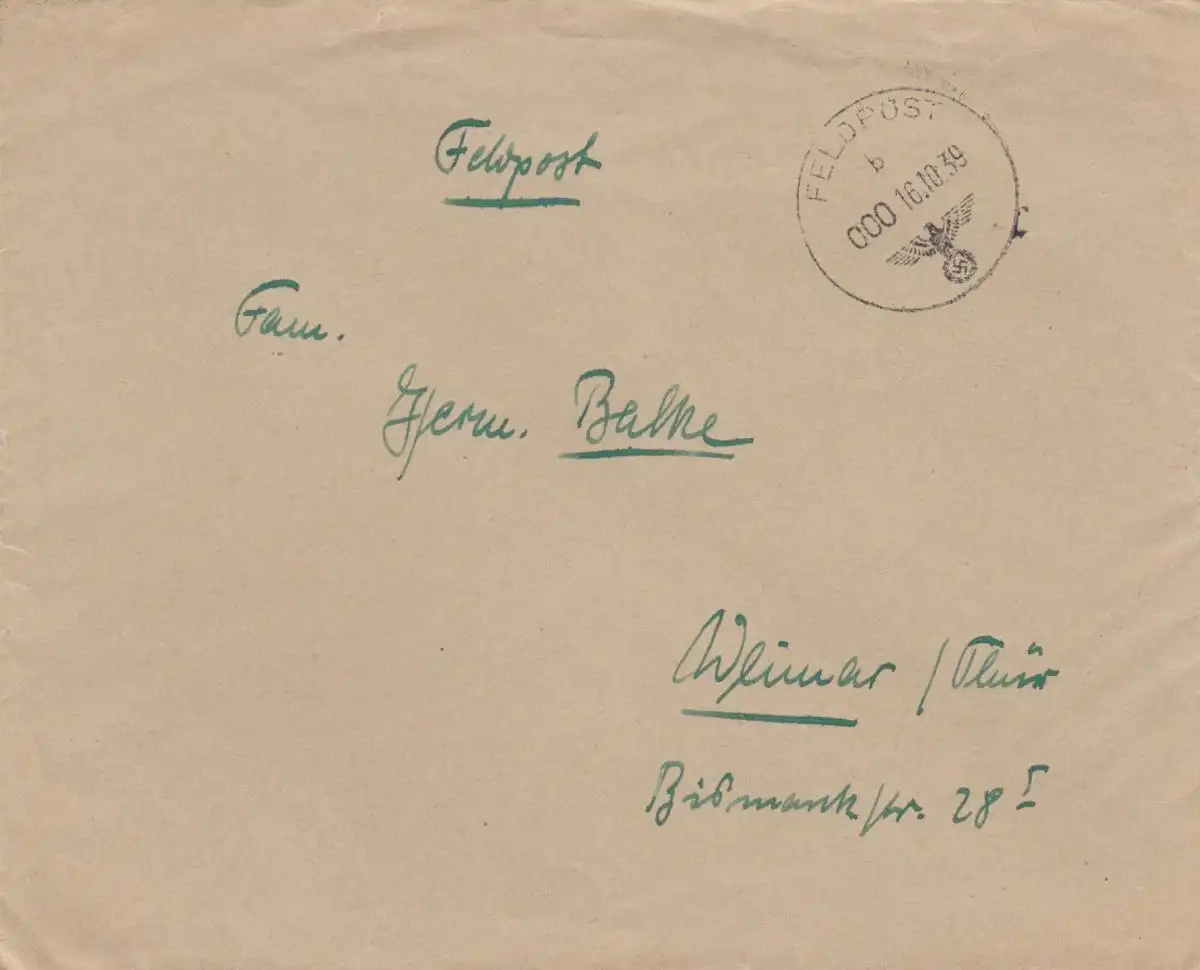 Feldpost
FELDPOST
b
000 16.10.39
Fam.
Herm. Balke
Weimar / Thür
Bismarckstr. 28 I